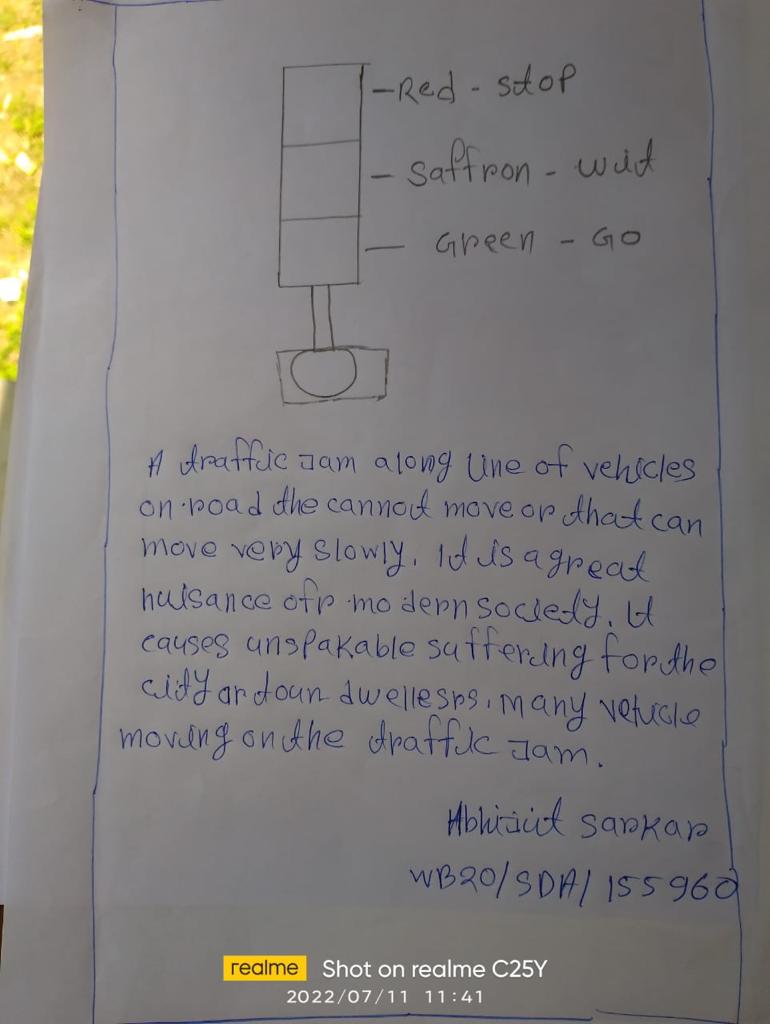 -Red - stop
- saffron - wait
- Green - GO
A traffic Jam along line of vehicles
on road the cannot move or that can
move very slowly. It is a great
nuisance ofr modern society. It
causes unspakable suffering for the
city or toun dwellesrs. many vehicle
moving on the traffic Jam.
Abhijit Sarkar
WB20/SDA/155960
realme Shot on realme C25Y
2022/07/11 11:41